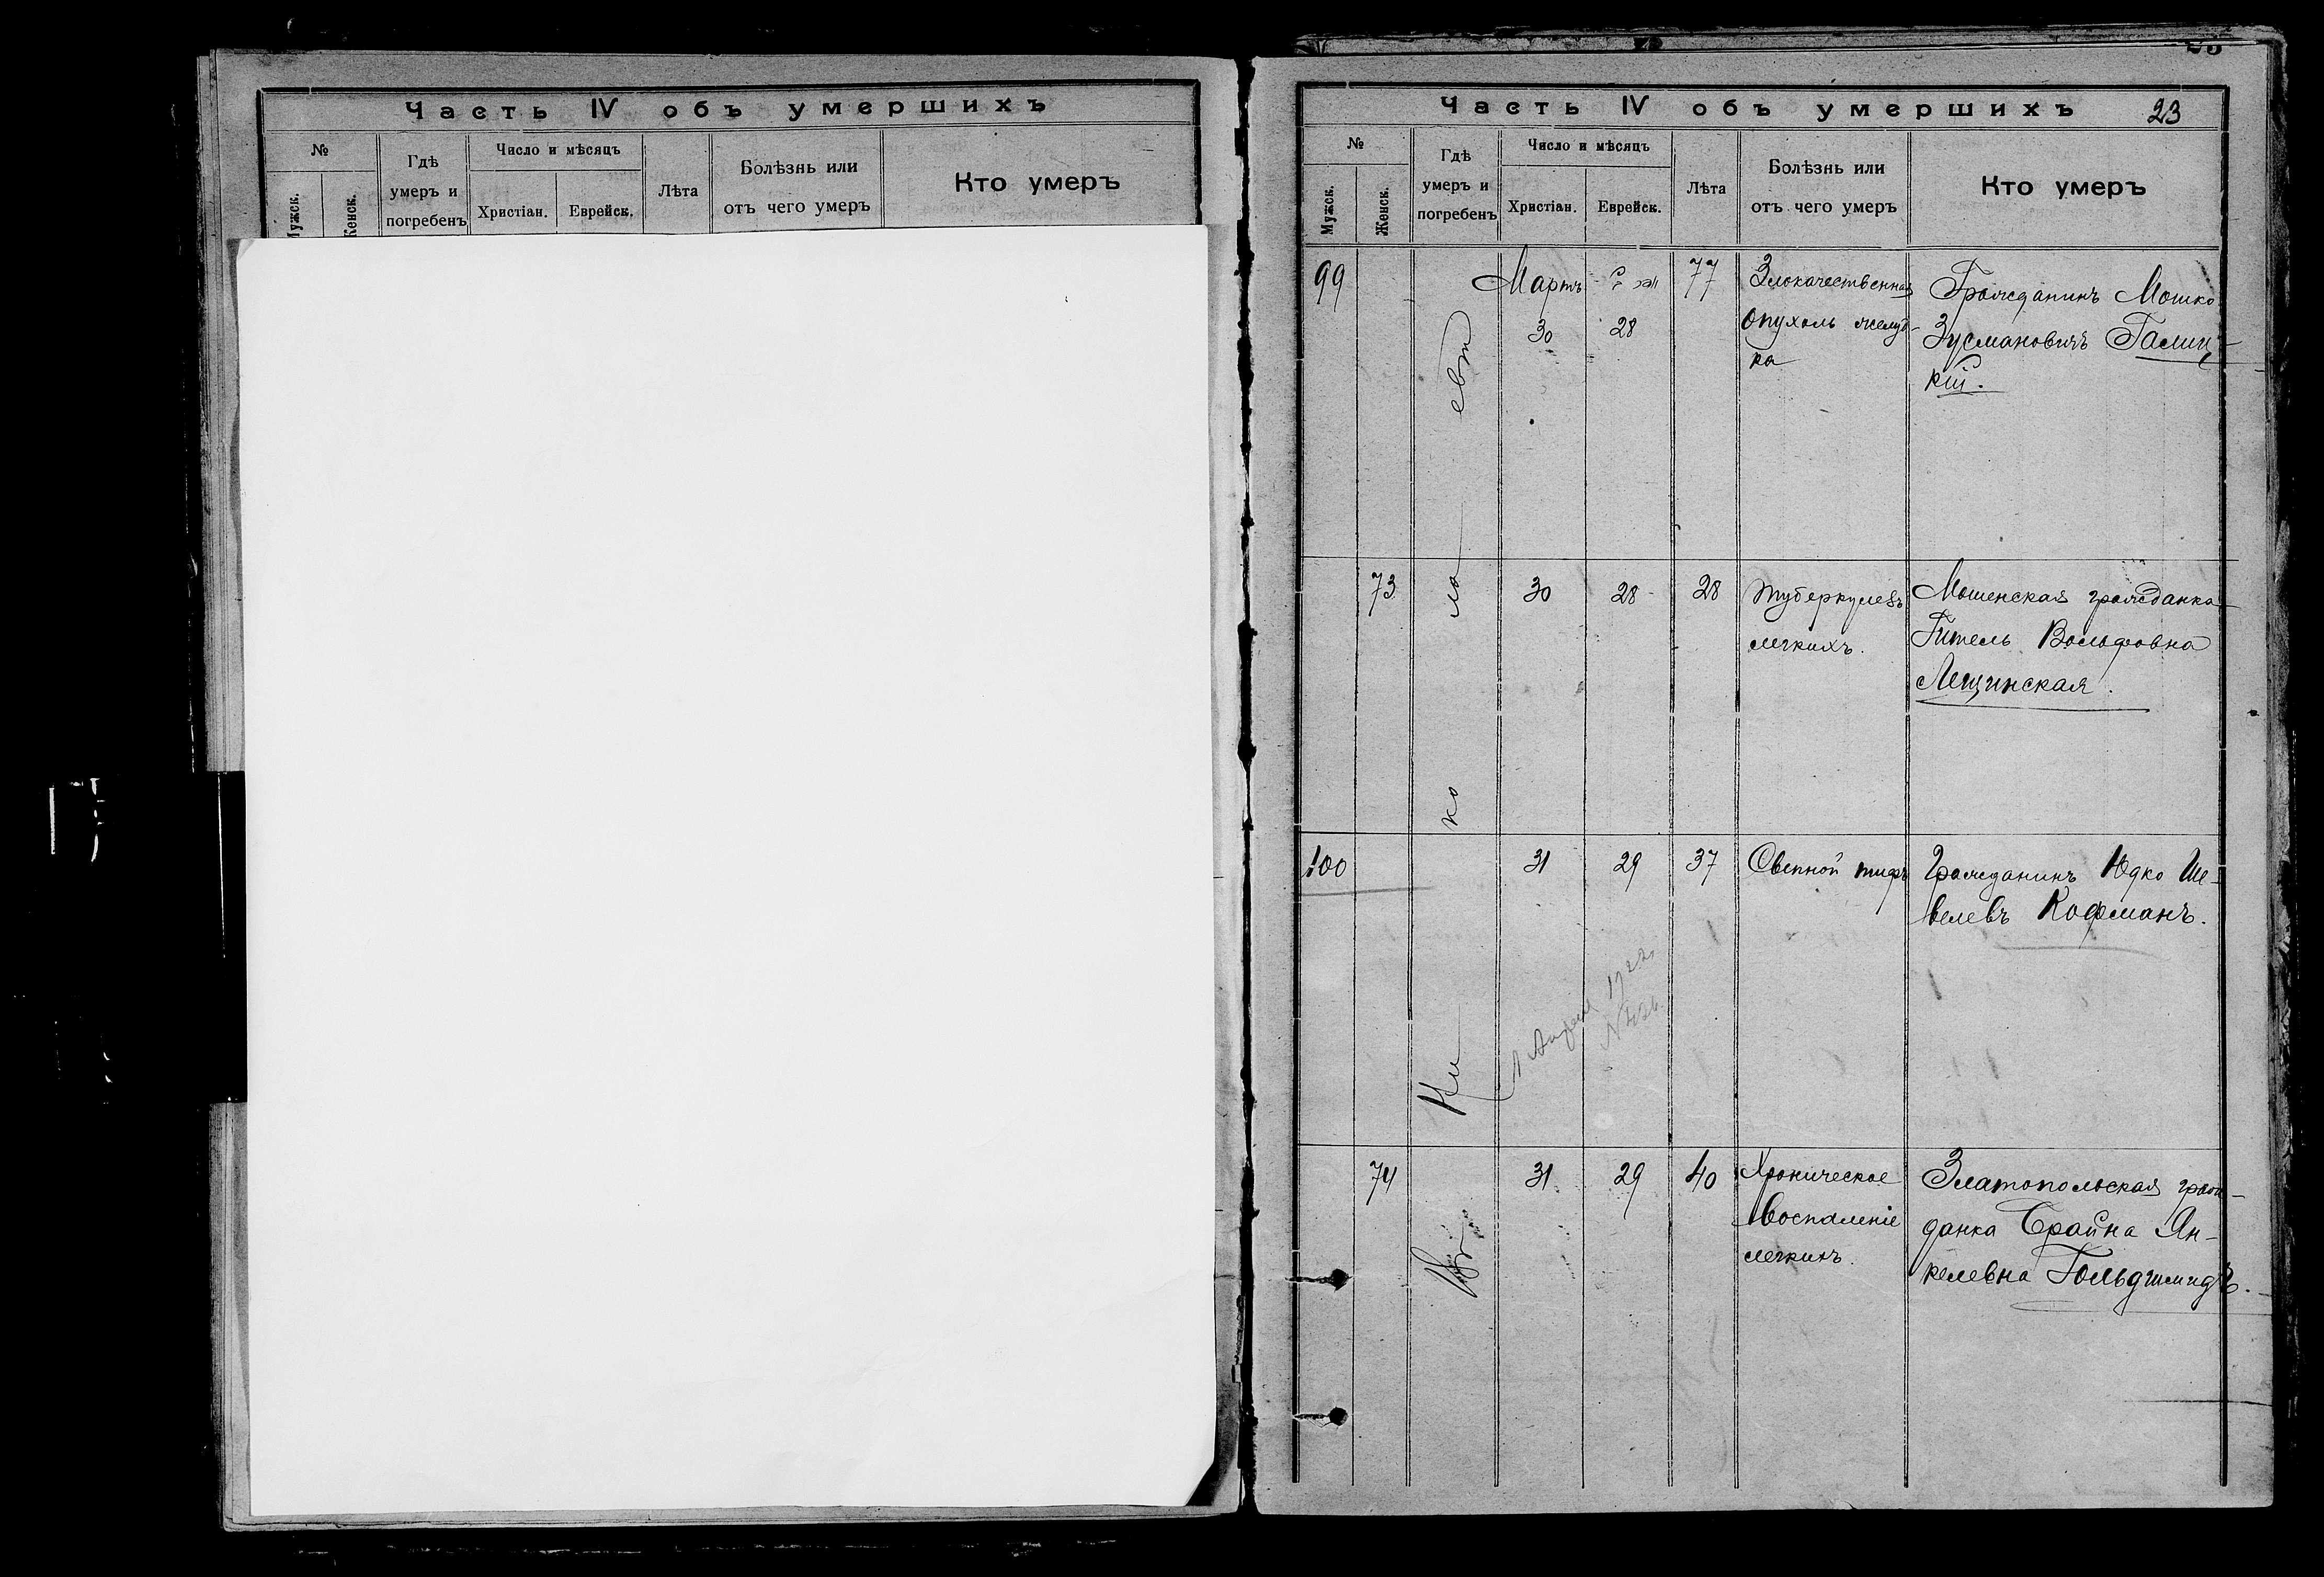 Часть IV объ умершихъ
№
Мужск.
Женск.
Гдѣ
умеръ и
погребенъ
Число и мѣсяцъ
Христіан.
Еврейск.
Лѣта
Болѣзнь или
отъ чего умеръ
Кто умеръ
Часть IV объ умершихъ 23
№
Мужск.
Женск.
Гдѣ
умеръ и
погребенъ
Число и мѣсяцъ
Христіан.
Еврейск.
Лѣта
Болѣзнь или
отъ чего умеръ
Кто умеръ
Въ Ни ко ла евѣ
99
Мартъ
30
28
77
Злокачественная
опухоль желуд-
ка
Гражданинъ Мошко
Зусмановичъ Галиц-
кій.
73
30
28
28
Туберкулезъ
легкихъ.
Мошенская гражданка
Гитель Вольфовна
Лещинская.
100
31
29
37
Сыпной тифъ
Гражданинъ Юдко Ше-
велевъ Кофманъ.
1 Апреля 1922
74
31
29
40
Хроническое
воспаленіе
легкихъ.
Златопольская граж-
данка Брайна Ян-
келевна Гольдшмидъ.